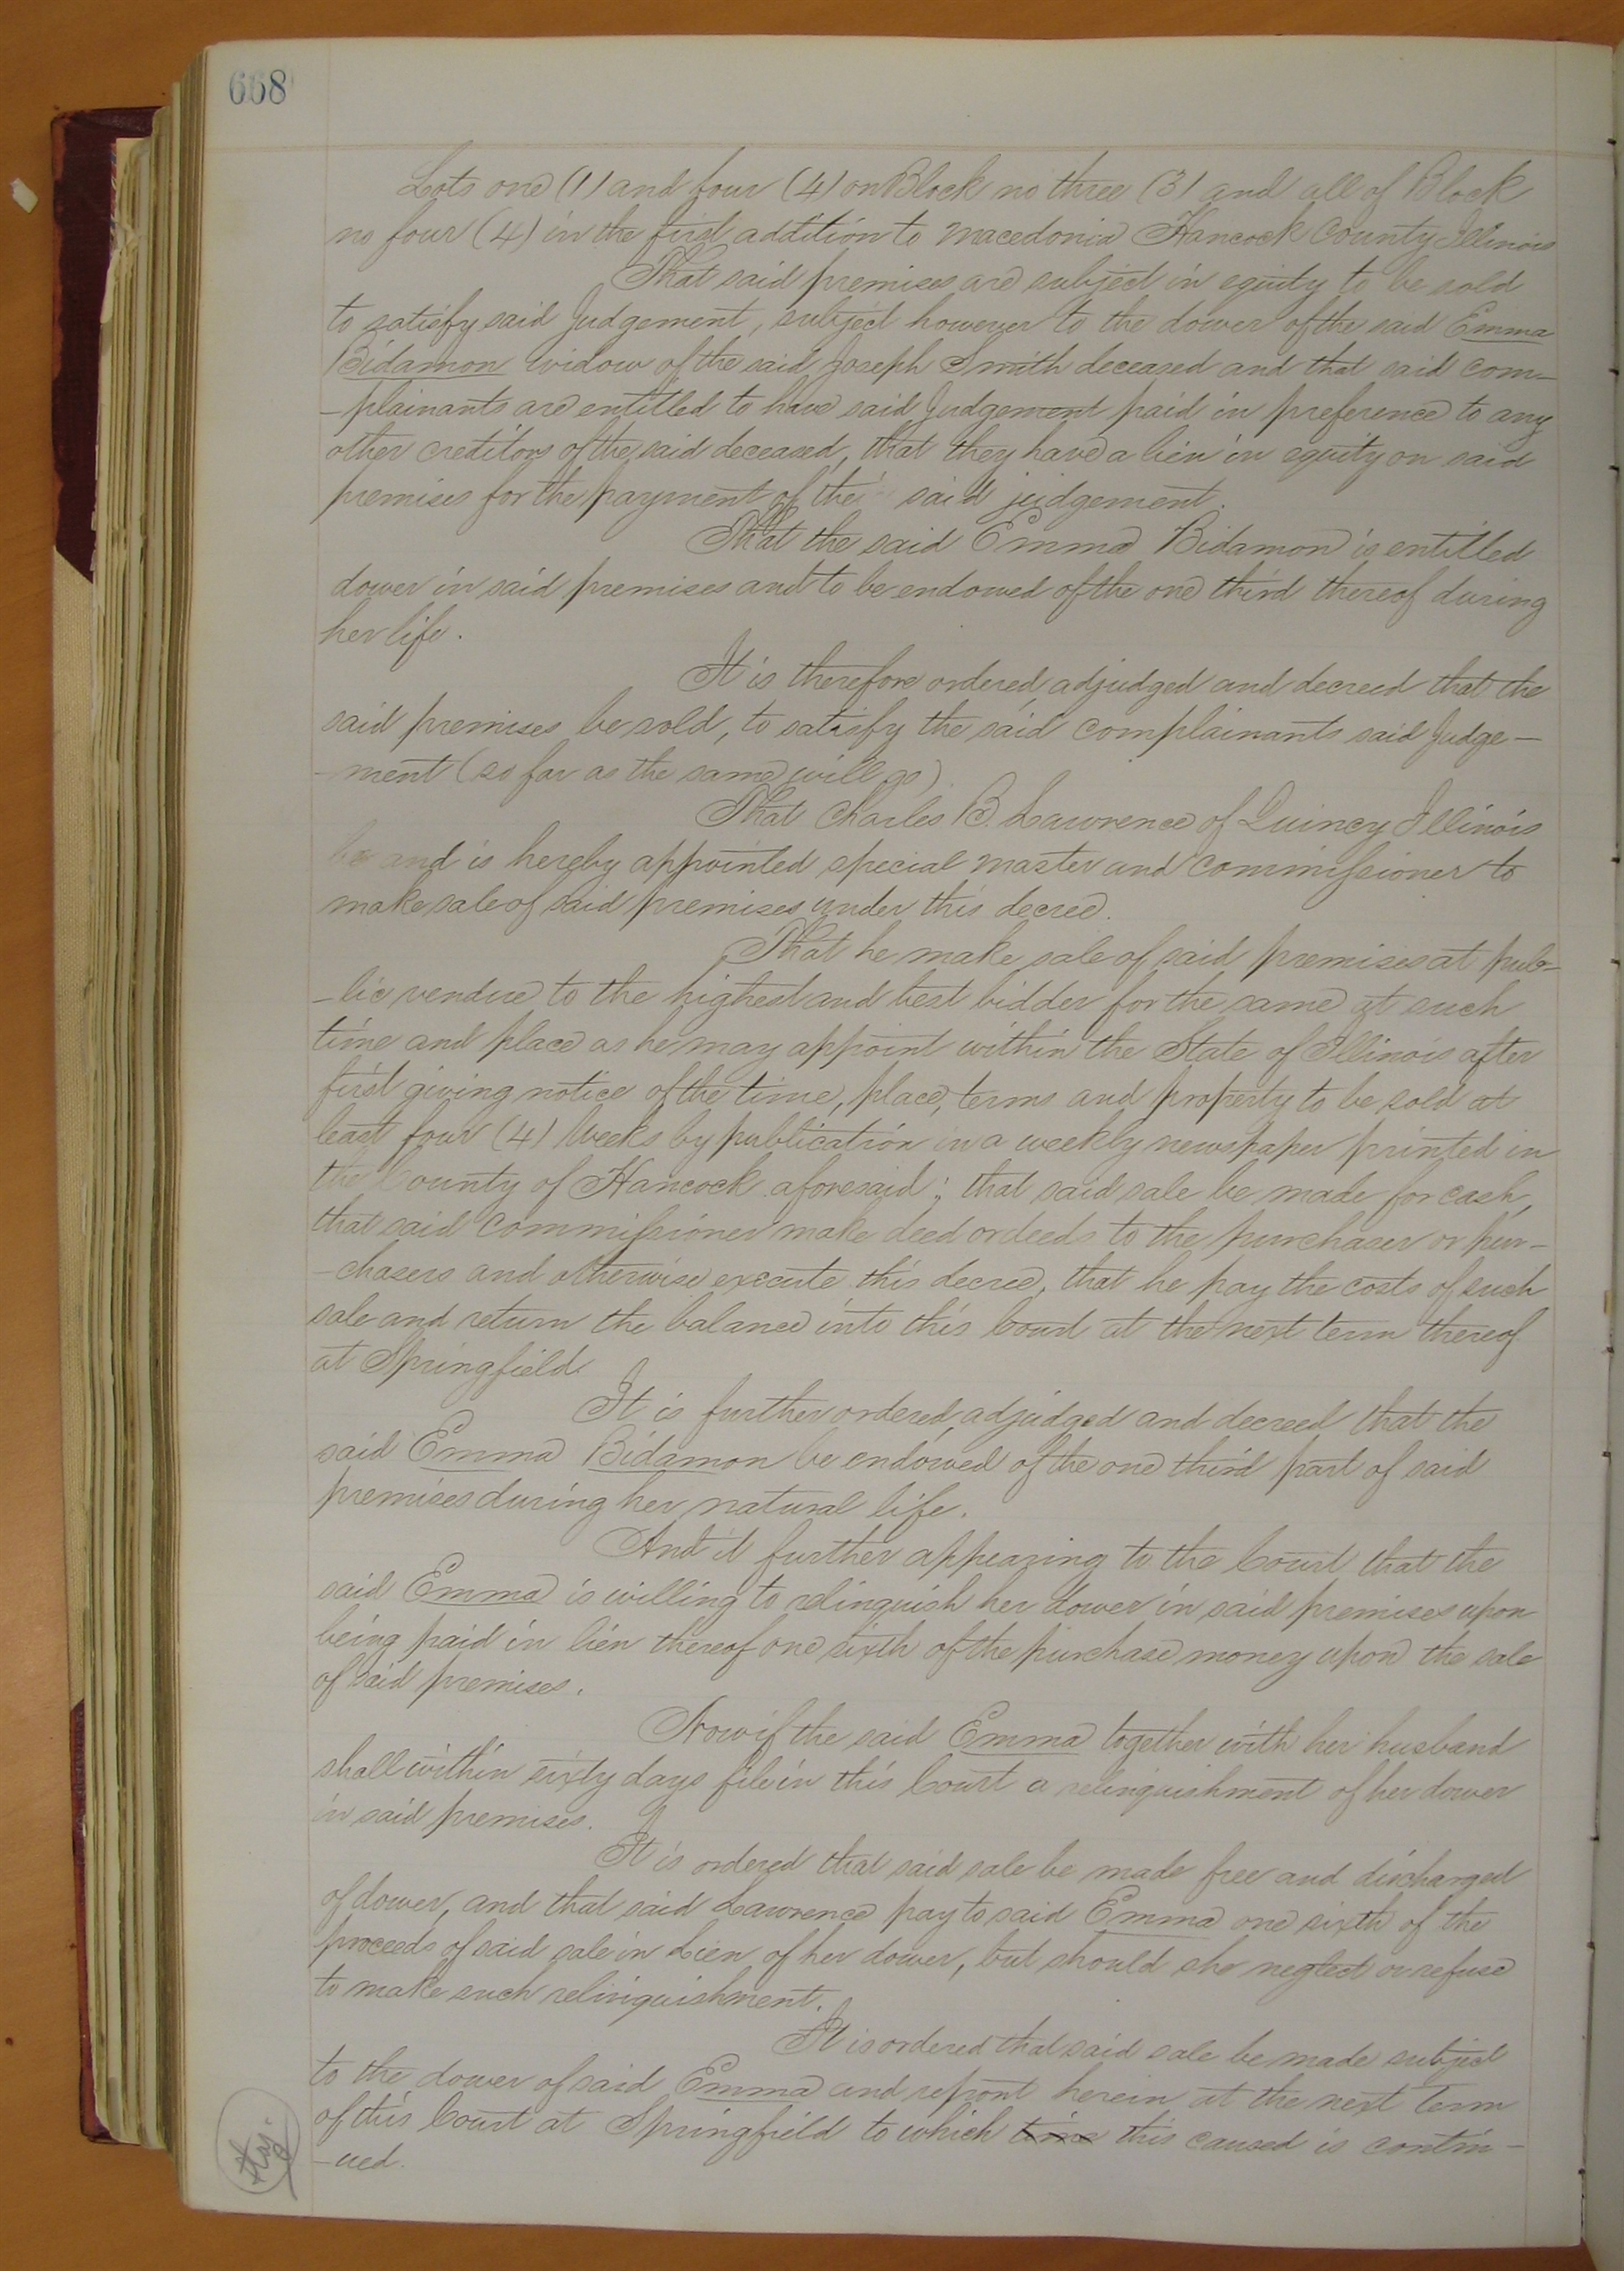 668
Lots one (1) and four (4) on Block no three (3) and all of Block
no four (4) in the first addition to Macedonia Hancock County Illinois
That said premises are subject in equity to be sold
to satisfy said Judgement, subject however to the dower of the said Emma
Bidamon widow of the said Joseph Smith deceased and that said com–
–plainants are entitled to have said Judgement paid in preference to any
other creditors of the said deceased, that they have a lien in equity on said
premises for the payment of the said judgement.
That the said Emma Bidamon is entitled
dower in said premises and to be endowed of the one third thereof during
her life.
It is therefore ordered, adjudged and decreed that the
said premises be sold, to satisfy the said complainants said Judge–
–ment (so far as the same will go)
That Charles B. Lawrence of Quincy Illinois
be and is hereby appointed special master and commissioner to
make sale of said premises under this decree.
That he make sale of said premises at pub–
–lic vendue to the highest and best bidder for the same at such
time and place as he may appoint within the State of Illinois after
first giving notice of the time, place, terms and property to be sold at
least four (4) Weeks by publication in a weekly newspaper printed in
the County of Hancock aforesaid; that said sale be made for cash,
that said commissioner make deed or deeds to the purchaser or pur–
–chasers and otherwise execute this decree, that he pay the costs of such
sale and return the balance into this Court at the next term thereof
at Springfield.
It is further ordered, adjudged and decreed that the
said Emma Bidamon be endowed of the one third part of said
premises during her natural life.
And it further appearing to the Court that the
said Emma is willing to relinquish her dower in said premises upon
being paid in lien thereof one sixth of the purchase money upon the sale
of said premises.
Now if the said Emma together with her husband
shall within sixty days file in this Court a relinquishment of her dower
in said premises.
It is ordered that said sale be made free and discharged
of dower, and that said Lawrence pay to said Emma one sixth of the
proceeds of said sale in Lien of her dower, but should she neglect or refuse
to make such relinquishment.
It is ordered that said sale be made subject
to the dower of said Emma and report herein at the next term
of this Court at Springfield to which time this caused is contin–
–ued.